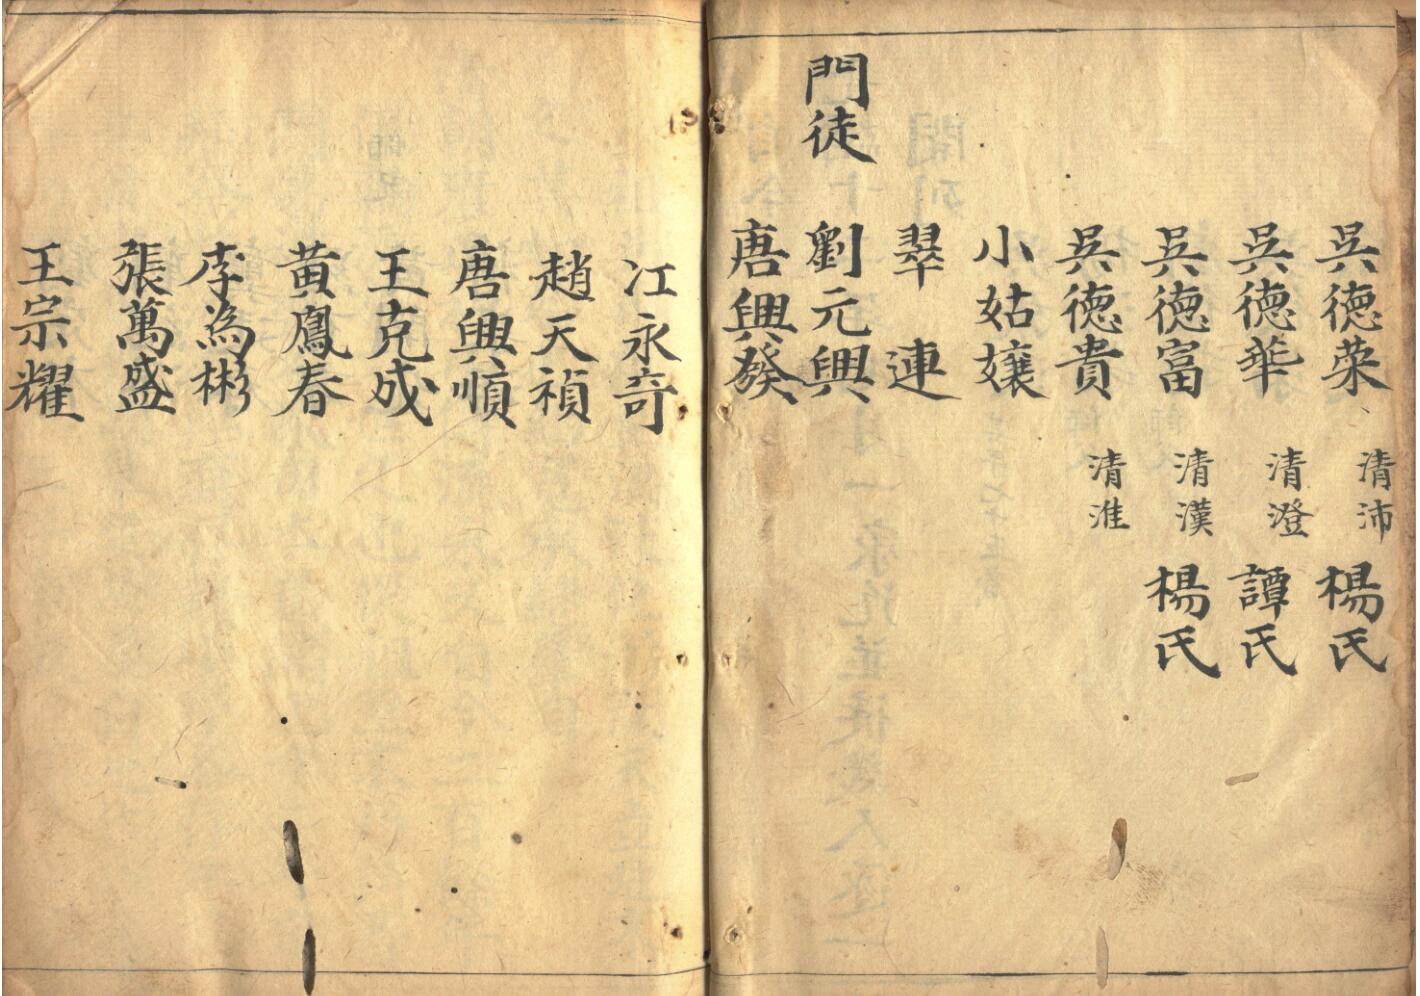 吳德榮 清沛 楊氏
吳德華 清澄 譚氏
吳德富 清漢 楊氏
吳德貴 清淮
小姑孃
翠連
門徒 劉元興
唐興發
江永奇
趙天禎
唐興順
王克成
黃鳳春
李為彬
張萬盛
王宗耀